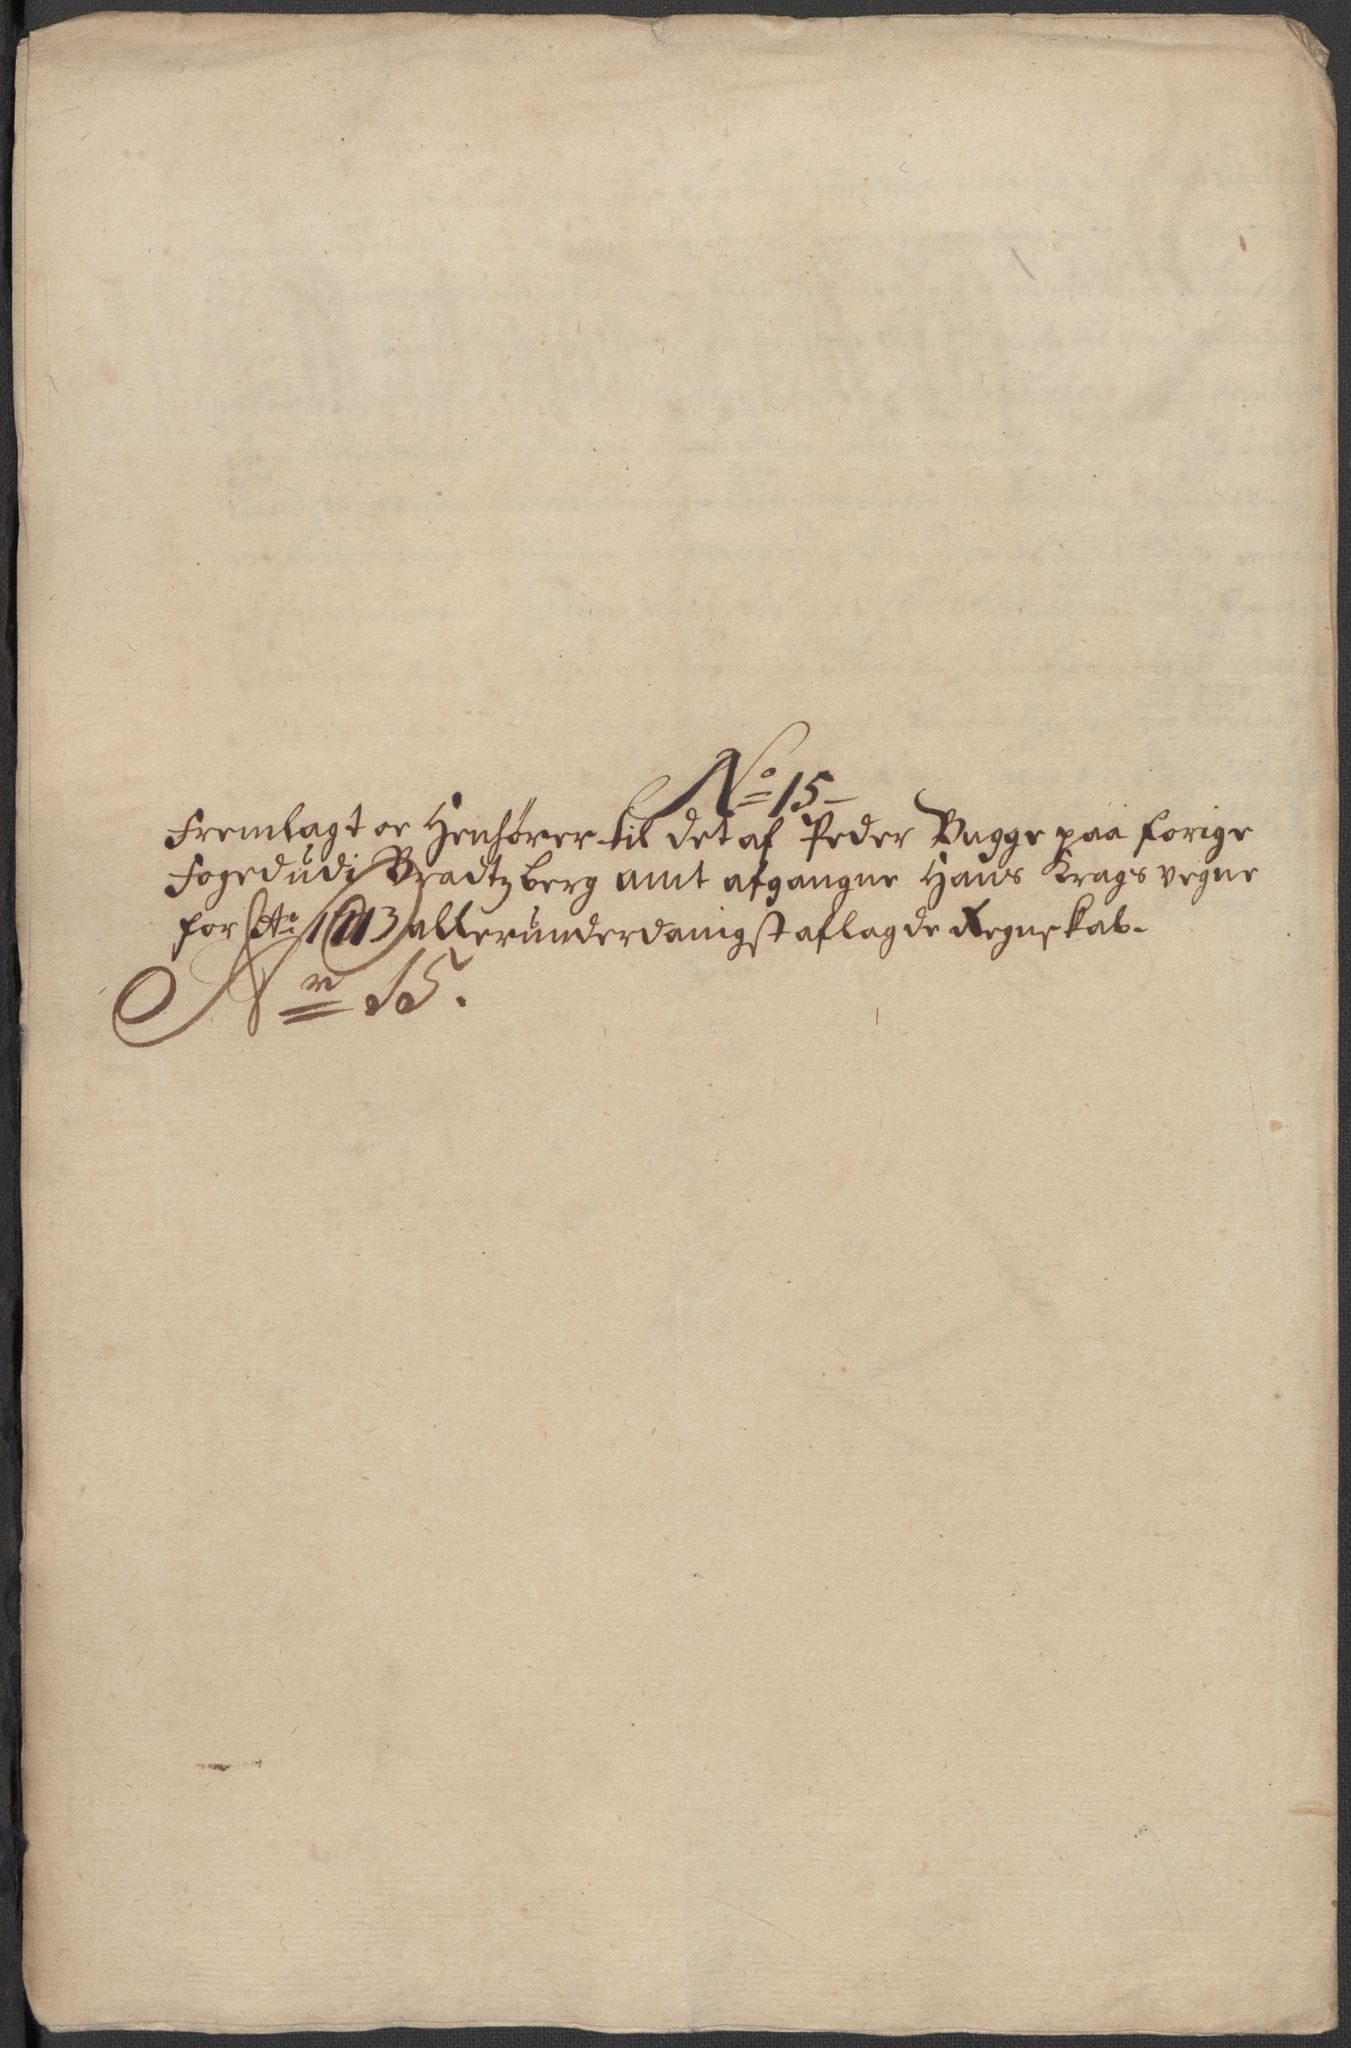 No 15
Fremlagt oc Henhører til det af Peder Bugge paa forige
Fogedud i Bradtzberg amt afgangne Hans Krags vegne
for Ao 1713 allerunderdanigst aflagde Regnskab.
Nr 15.